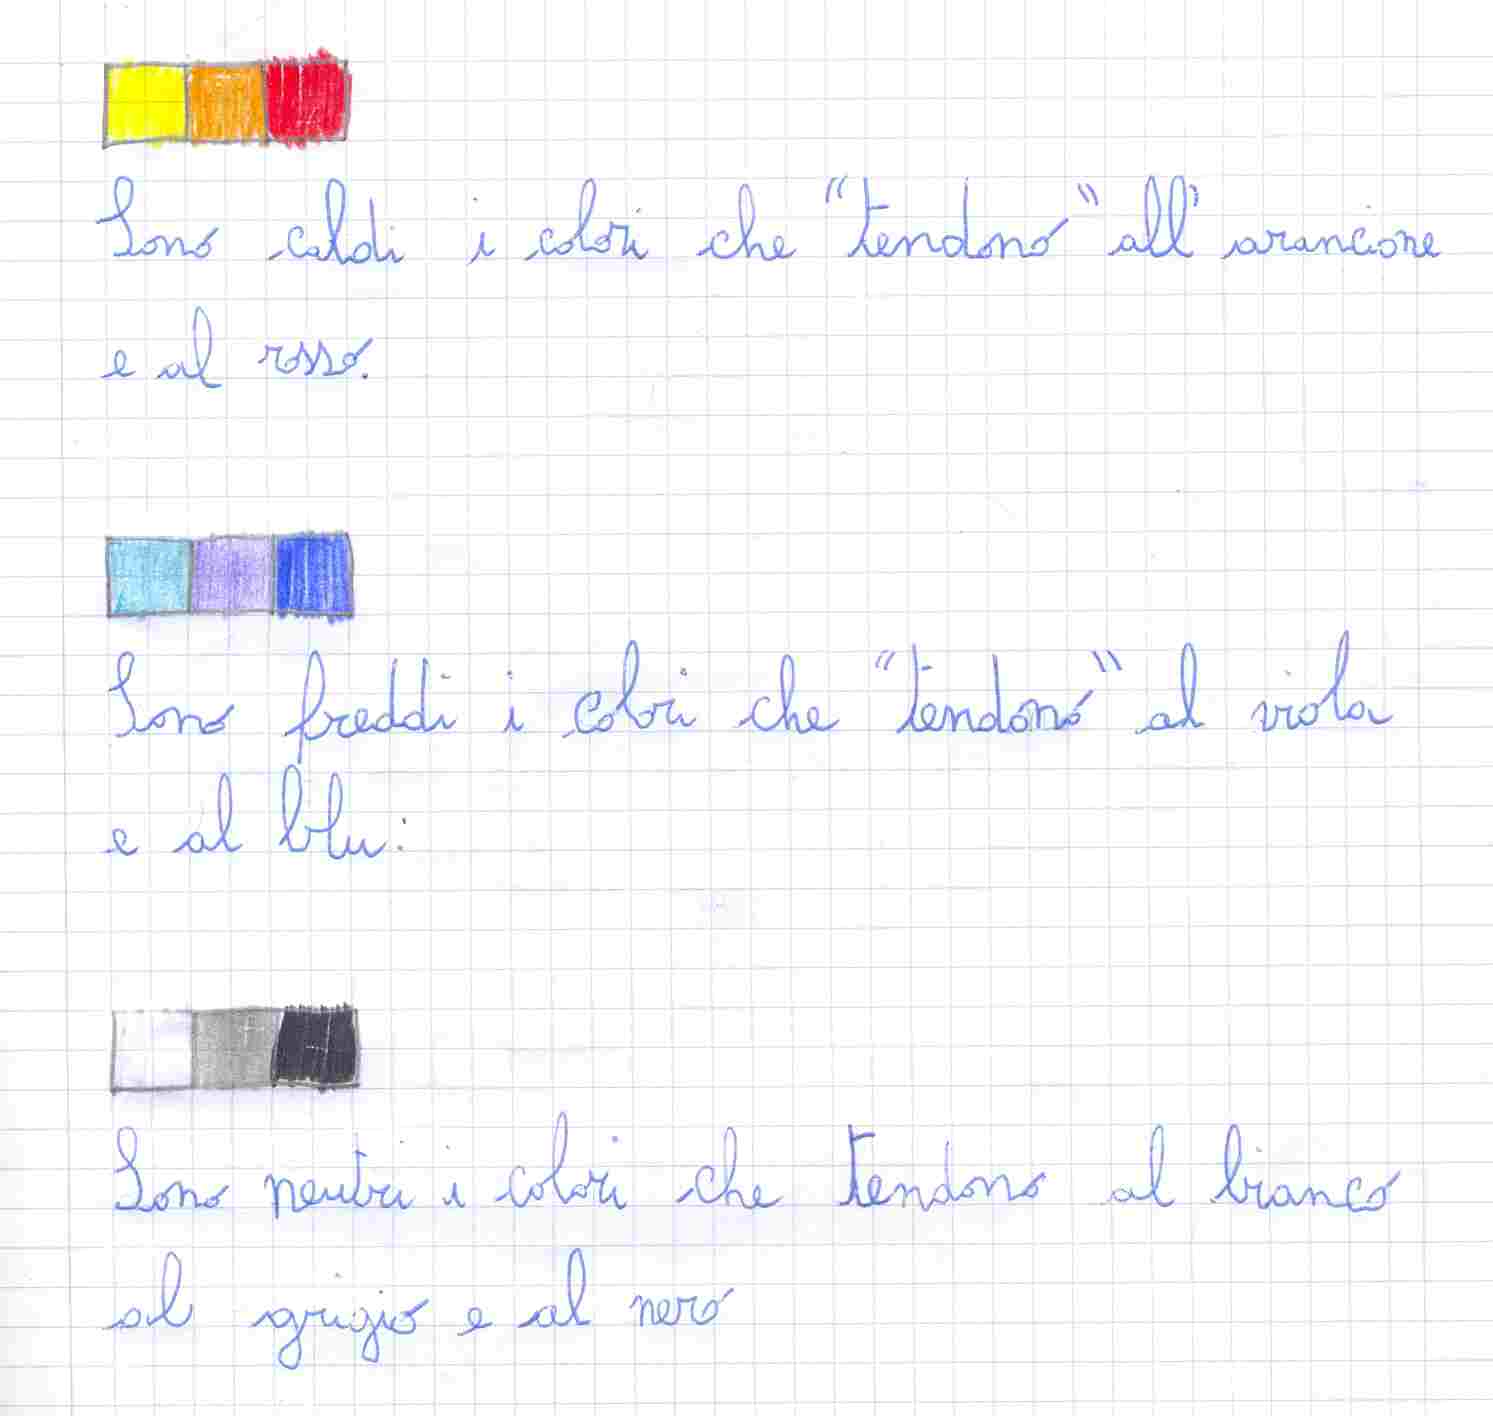 Sono caldi i colori che "tendono" all'arancione
e al rosso.
Sono freddi i colori che "tendono" al viola
e al blu.
Sono neutri i colori che tendono al bianco
al grigio e al nero